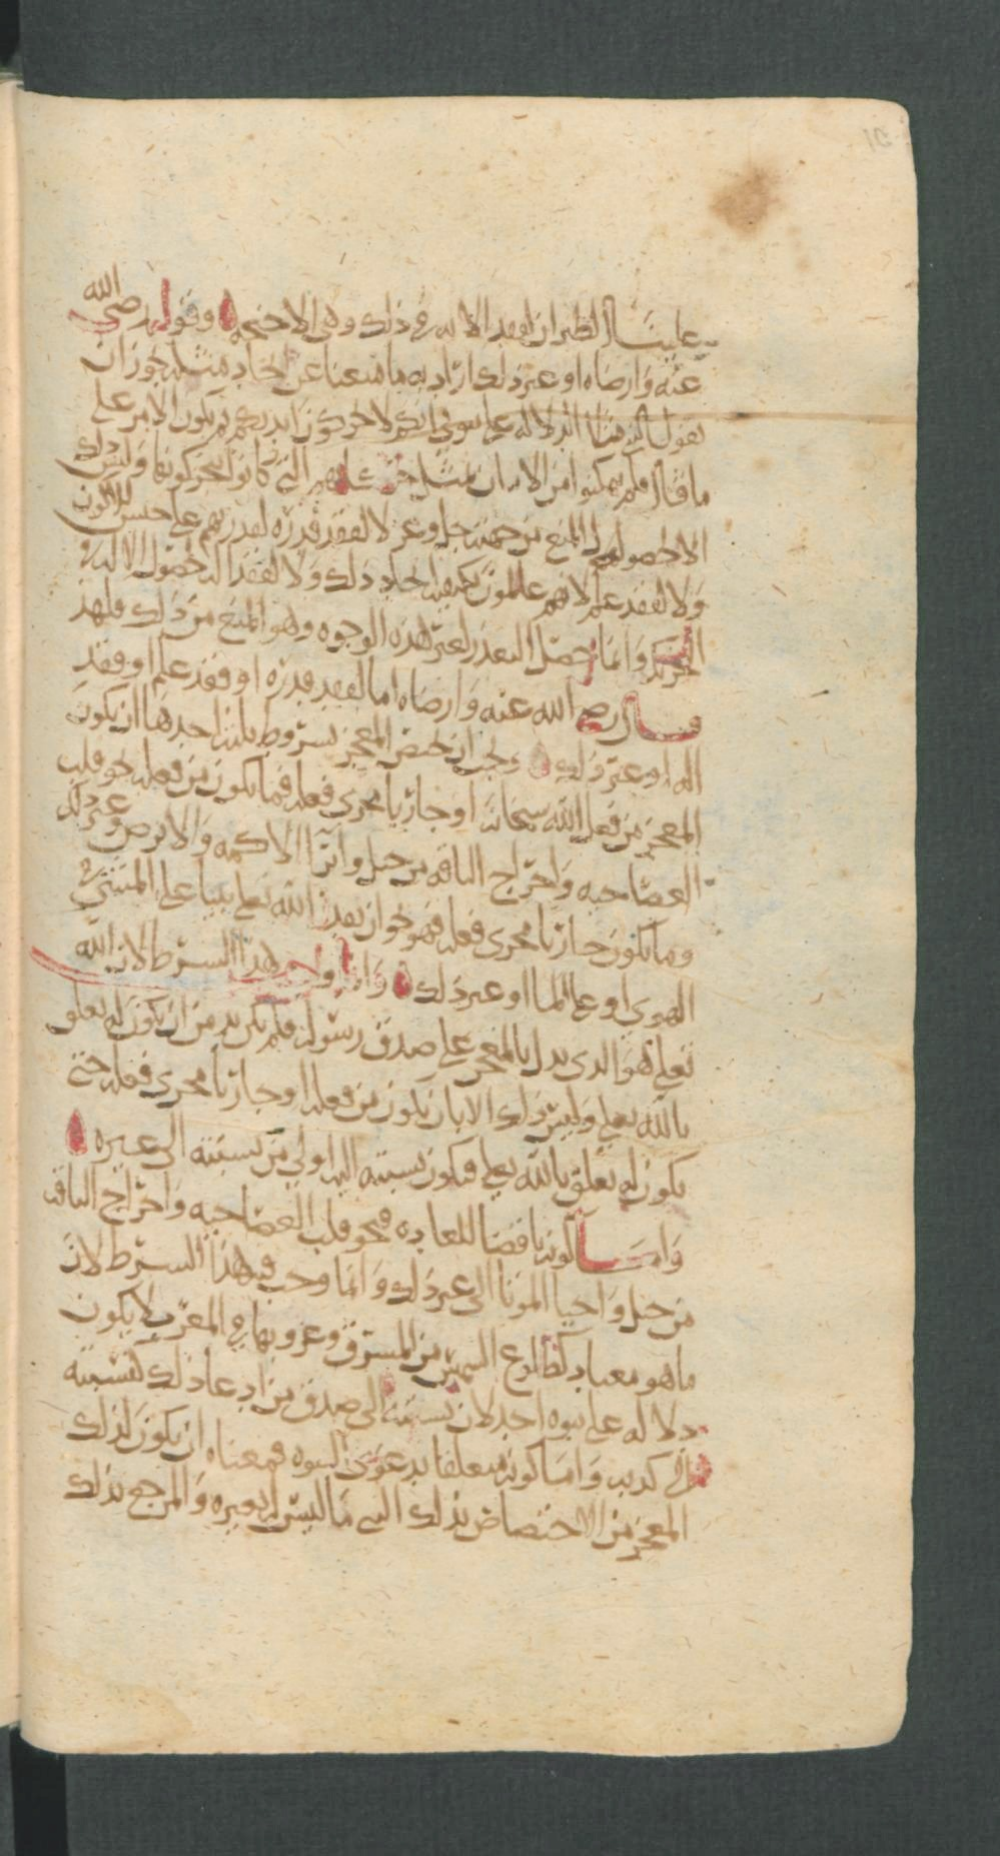 علينا الطيران لفقد الاله في ذلك وهي الاجنحه وقوله رضي الله
عنه وارضاه او غير ذلك اراد به ما منعنا عن ايجاد مثله نحو ان
يقول النبي الدلاله على نبوتي انكم لا تحركون ايديكم ثم يكون الامر على
ما قال فلم يمكنوا من الاتيان بمثل التي كانوا يحركونها وليس ذلك
الا لحصول المنع من جهته جل وعز لا لفقد قدره لقدرتهم على جنس الاكوان
ولا لفقد علم لانهم عالمون بكيفيه ايجاد ذلك ولا لفقد اله لحصول الاله و
وانما حصل التعذر لغير هذه الوجوه وهو المنع من ذلك فلهذا
قال رضي الله عنه وارضاه اما لفقد قدره او فقد علم او فقد
اله او غير ذلك ويجب ان يختص المعجز بشروط ثلثه احدها ان يكون
المعجز من فعل الله سبحانه او جاريا مجرى فعله فما يكون من فعله نحو قلب
العصا حيه واخراج الناقه من جبل وابرا الاكمه والابرص وغير ذلك
وما يكون جاريا مجرى فعله فهو نحو ان يقدر الله تعلى نبيا على المشي في
الهوى او على الما او غير ذلك وانما وجب هذا الشرط لان الله
تعلى هو الذي يدل بالمعجز على صدق رسوله فلم يكن بد من ان يكون له تعلق
بالله تعلى وليس ذلك الا بان يكون من فعله او جاريا مجرى فعله حتى
يكون له تعلق بالله تعلى فيكون نسبته اليه اولى من نسبته الى غيره
واما كونه ناقضا للعاده فنحو قلب العصا حيه واخراج الناقه
من جبل واحيا الموتا الى غير ذلك وانما وجب فيه هذا الشرط لان
ما هو معتاد كطلوع الشمس من المشرق وغروبها في المغرب لا يكون
دلاله على نبوه احد لان نسبته الى صدق من ادعا ذلك كنسبته
الى كذبه واما كونه متعلقا بدعوى النبوه فمعناه ان يكون لذلك
المعجز من الاختصاص بذلك النبي ما ليس له بغيره والمرجع بذلك